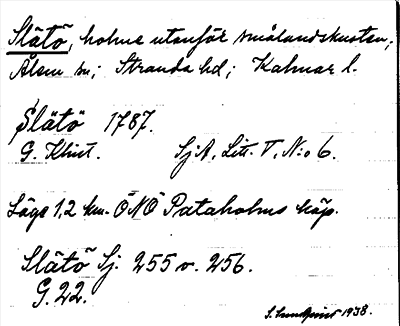 Slätö, holme utanför smålandskusten;
Ålem sn; Stranda hd; Kalmar l.
Slätö 1787.
G. Klint. SjA, Litt. T, N:o 6.
Läge 1,2 km. ÖNÖ Pataholms köp.
Slätö Sj. 255 v. 256.
G. 22.
S. Lundqvist 1938.